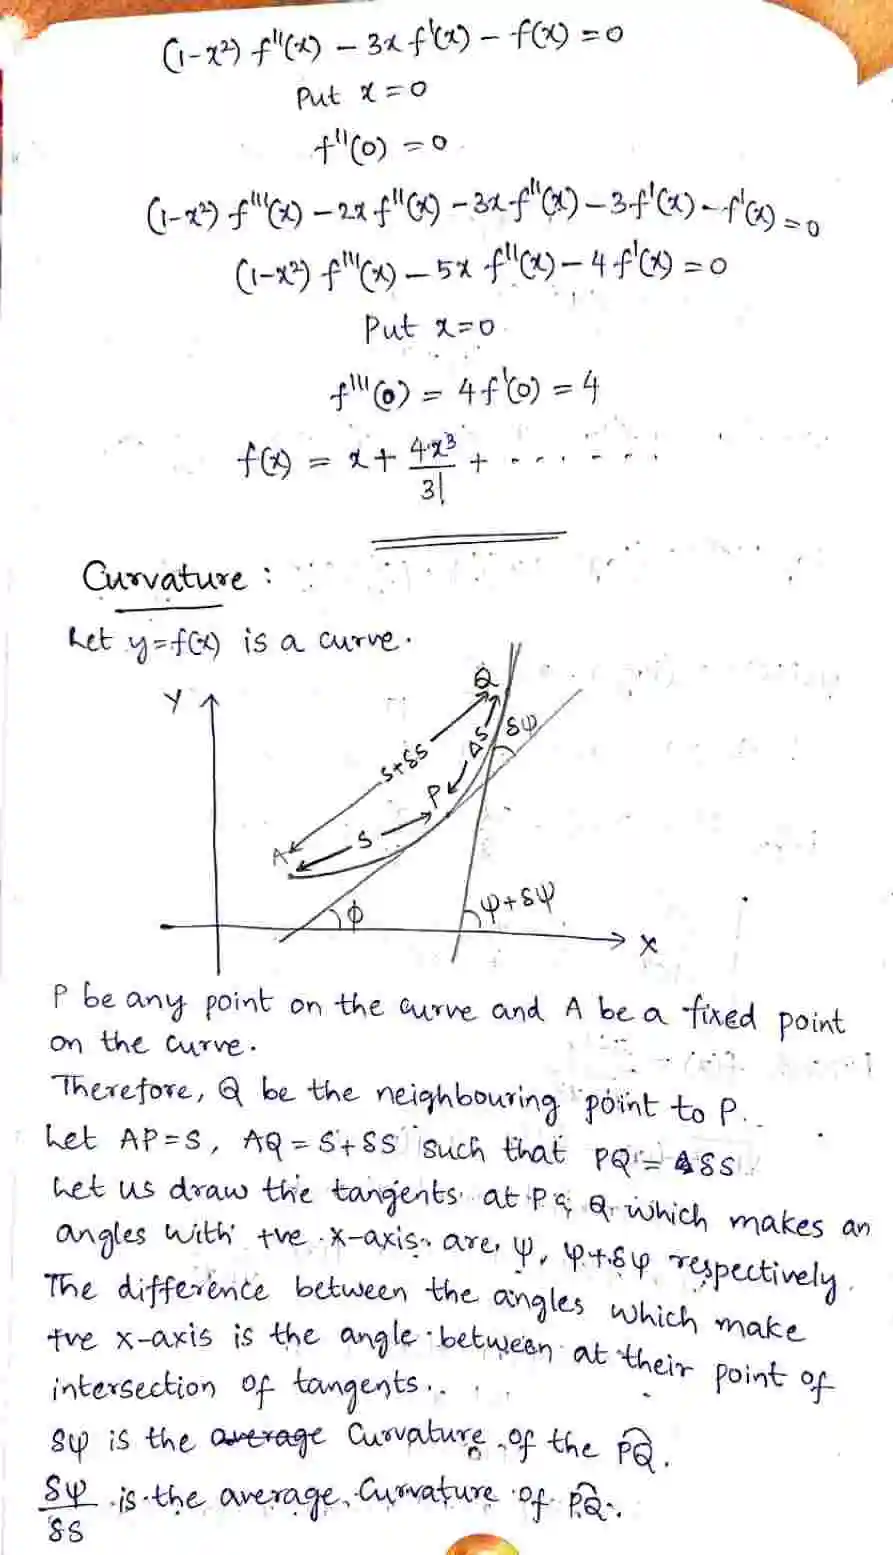 (1-x²) f''(x) - 3x f'(x) - f(x) = 0
Put x = 0
f''(0) = 0
(1-x²) f'''(x) - 2x f''(x) - 3x f''(x) - 3f'(x) - f'(x) = 0
(1-x²) f'''(x) - 5x f''(x) - 4 f'(x) = 0
Put x=0
f'''(0) = 4f'(0) = 4
f(x) = x + 4·x³/3! + . . . . - . .
Curvature :
Let y=f(x) is a curve.
Q
Y
δψ
S+δS
ΔS
P
S
A
ϕ
ψ+δψ
X
P be any point on the curve and A be a fixed point
on the curve.
Therefore, Q be the neighbouring point to P.
Let AP=S, AQ = S+δS such that PQ = δS
Let us draw the tangents at P & Q which makes an
angles with +ve x-axis are ψ, ψ+δψ respectively.
The difference between the angles which make
+ve x-axis is the angle between at their point of
intersection of tangents.
δψ is the average Curvature of the PQ.
δψ/δS is the average Curvature of PQ.